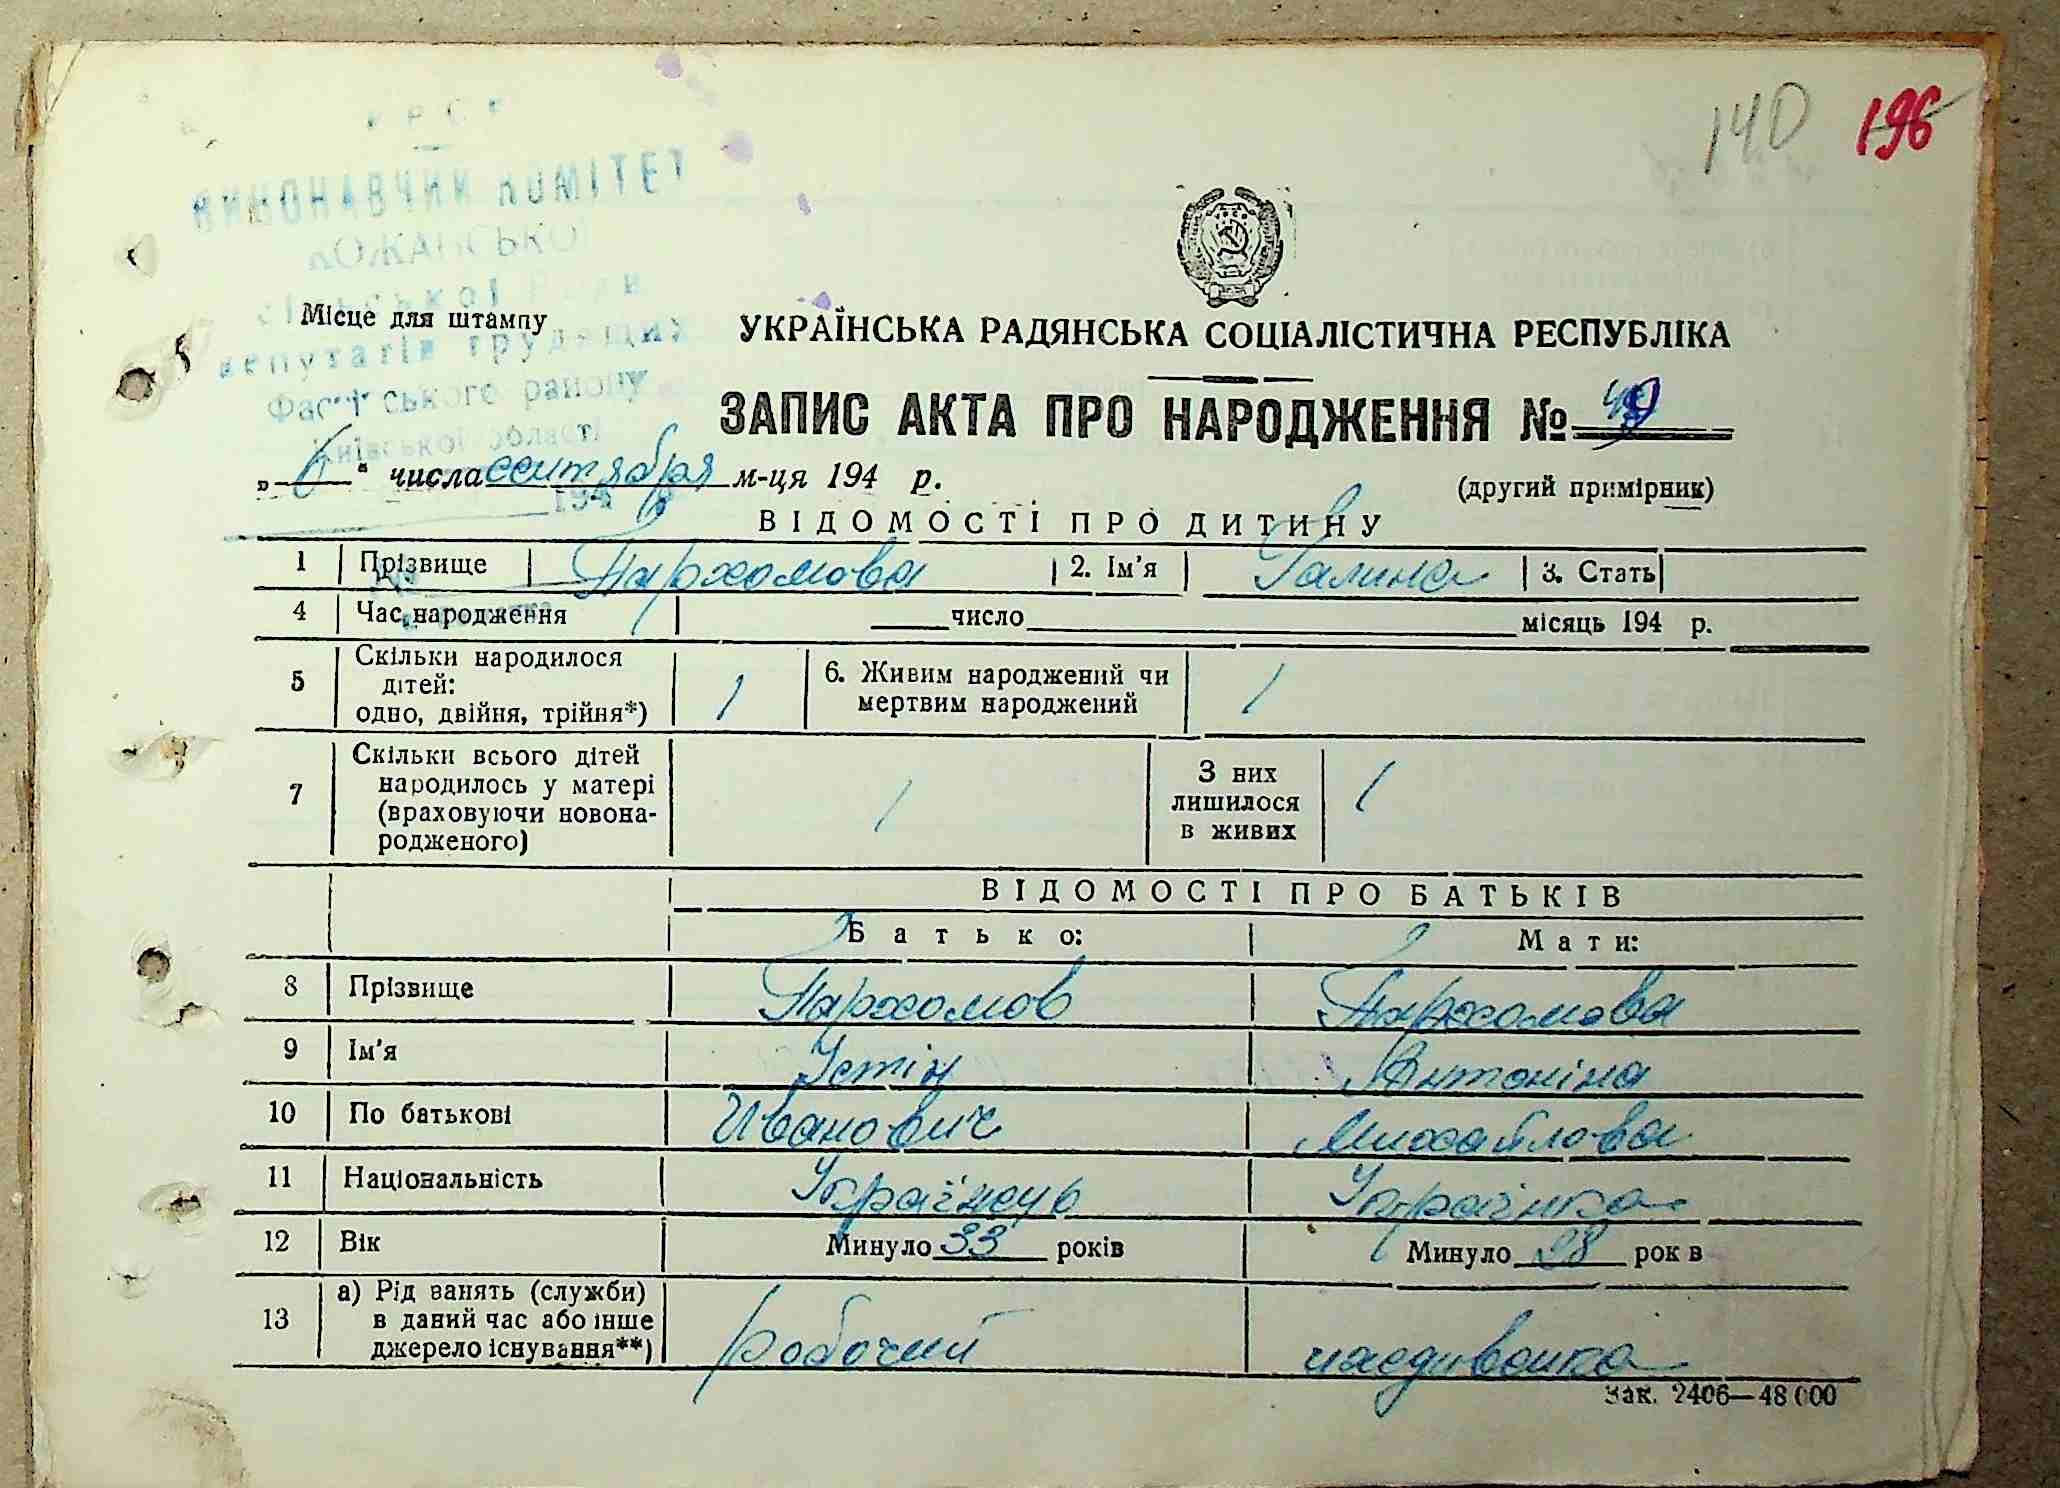 140 196
УРСР
ВИКОНАВЧИЙ КОМІТЕТ
КОЖАНСЬКОЇ
сільської Ради
депутатів трудящих
Фастівського району
Київської області
194
Місце для штампу
УКРАЇНСЬКА РАДЯНСЬКА СОЦІАЛІСТИЧНА РЕСПУБЛІКА
ЗАПИС АКТА ПРО НАРОДЖЕННЯ №
„6“ числа сентября м-ця 194 р.
(другий примірник)
ВІДОМОСТІ ПРО ДИТИНУ
1 Прізвище Пархомова 2. Ім'я Галина 3. Стать
4 Час народження число місяць 194 р.
5 Скільки народилося дітей: одно, двійня, трійня*) 1 6. Живим народжений чи мертвим народжений 1
7 Скільки всього дітей народилось у матері (враховуючи новонародженого) 1 З них лишилося в живих 1
ВІДОМОСТІ ПРО БАТЬКІВ
Батько: Мати:
8 Прізвище Пархомов Пархомова
9 Ім'я Устін Антоніна
10 По батькові Иванович Михайлова
11 Національність Українець Українка
12 Вік Минуло 33 років Минуло 28 рок в
13 а) Рід занять (служби) в даний час або інше джерело існування**) робочий
Зак. 2406—48 000